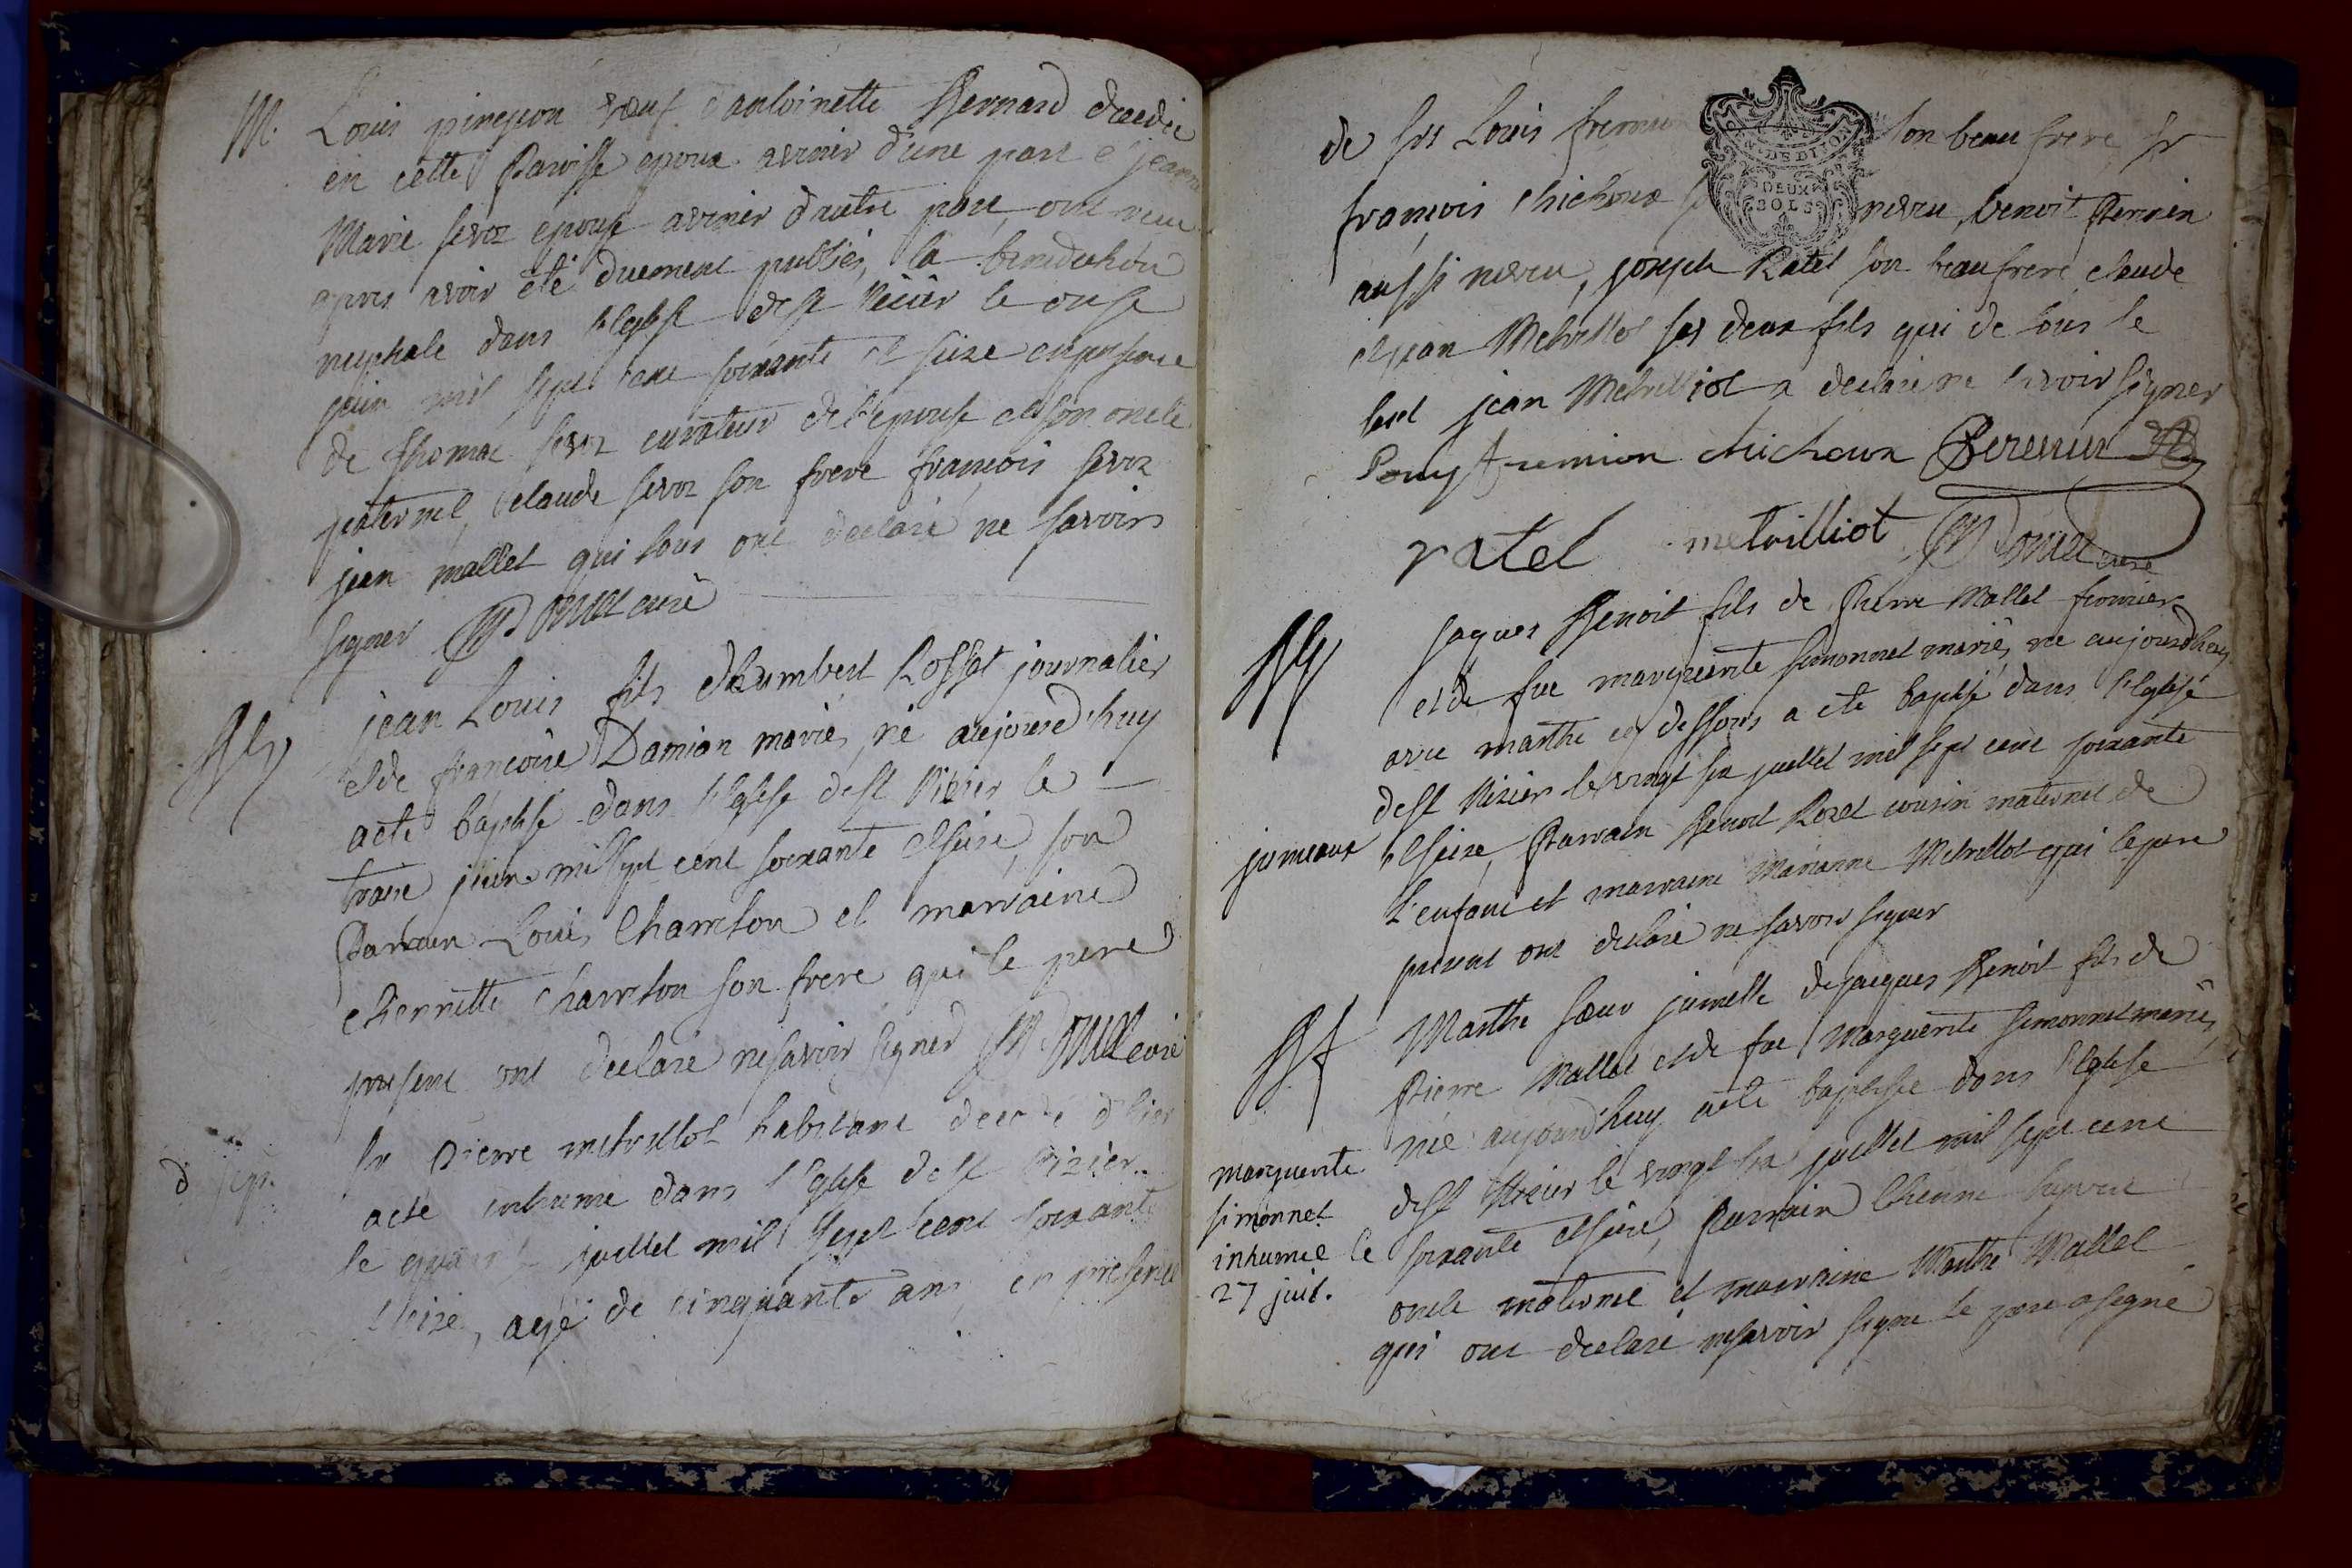 M. Louis pinesson veuf d'antoinette Bernard decedée
en cette Paroisse epoux avenir d'une part et jeanne
Marie sevoz epouse avenir d'autre part, ont receu
apres avoir été duement publiés, la benediction
nuptiale dans l'eglise de st Nizier le onze
juin mil sept cent soixante et seize en presence
de thomas sevoz curateur de l'epouse et son oncle
paternel, claude sevoz son frere françois sevoz
jean mallet qui tous ont declaré ne savoir
signer curé
jean Louis fils d'humbert Rosset journalier
et de françoise Damian mariés, né aujourd'huy
a eté baptisé dans l'eglise de st Nizier le
treize juin mil sept cent soixante et seize, son
Parrain Louis Chamton et marraine
pierrette Chamton son frere qui le pere
present ont declaré ne savoir signer curé
d sepr. Sr Pierre metrillot habitant decedé d'hier
a eté inhumé dans l'eglise de st Nizier
le juillet mil sept cent soixante
et seize, agé de cinquante ans, en presence
de srs Louis fremion son beau frere, sr
françois chichoux neveu, benoit Perrin
aussi neveu, joseph Ratel son beau frere, claude
et jean Metrillot ses deux fils qui de tous le
seul jean Metrilliot a declaré ne savoir signer
fremion chichoux
ratel metrilliot curé
jaques Benoit fils de Pierre Mallet fermier
et de fue marguerite simonnet mariés, né aujourd'huy
avec marthe cy dessous a eté baptisé dans l'eglise
de st Nizier le vingt six juillet mil sept cent soixante
jumeaux et seize, Parrain Benoit Rozet cousin maternel de
l'enfant et marraine Marianne Metrillot qui le pere
present ont declaré ne savoir signer
Marthe sœur jumelle de jacques Benoit fils de
Pierre Mallet et de fue Marguerite simonnet mariés,
née aujourd'huy a eté baptisée dans l'eglise
de st Nizier le vingt six juillet mil sept cent
soixante et seize, Parrain
oncle maternel et marraine Marthe Mallet
qui ont declaré ne savoir signer le pere a signé
marguerite
simonnet
inhumée le
27 juil.
DEUX
SOLS